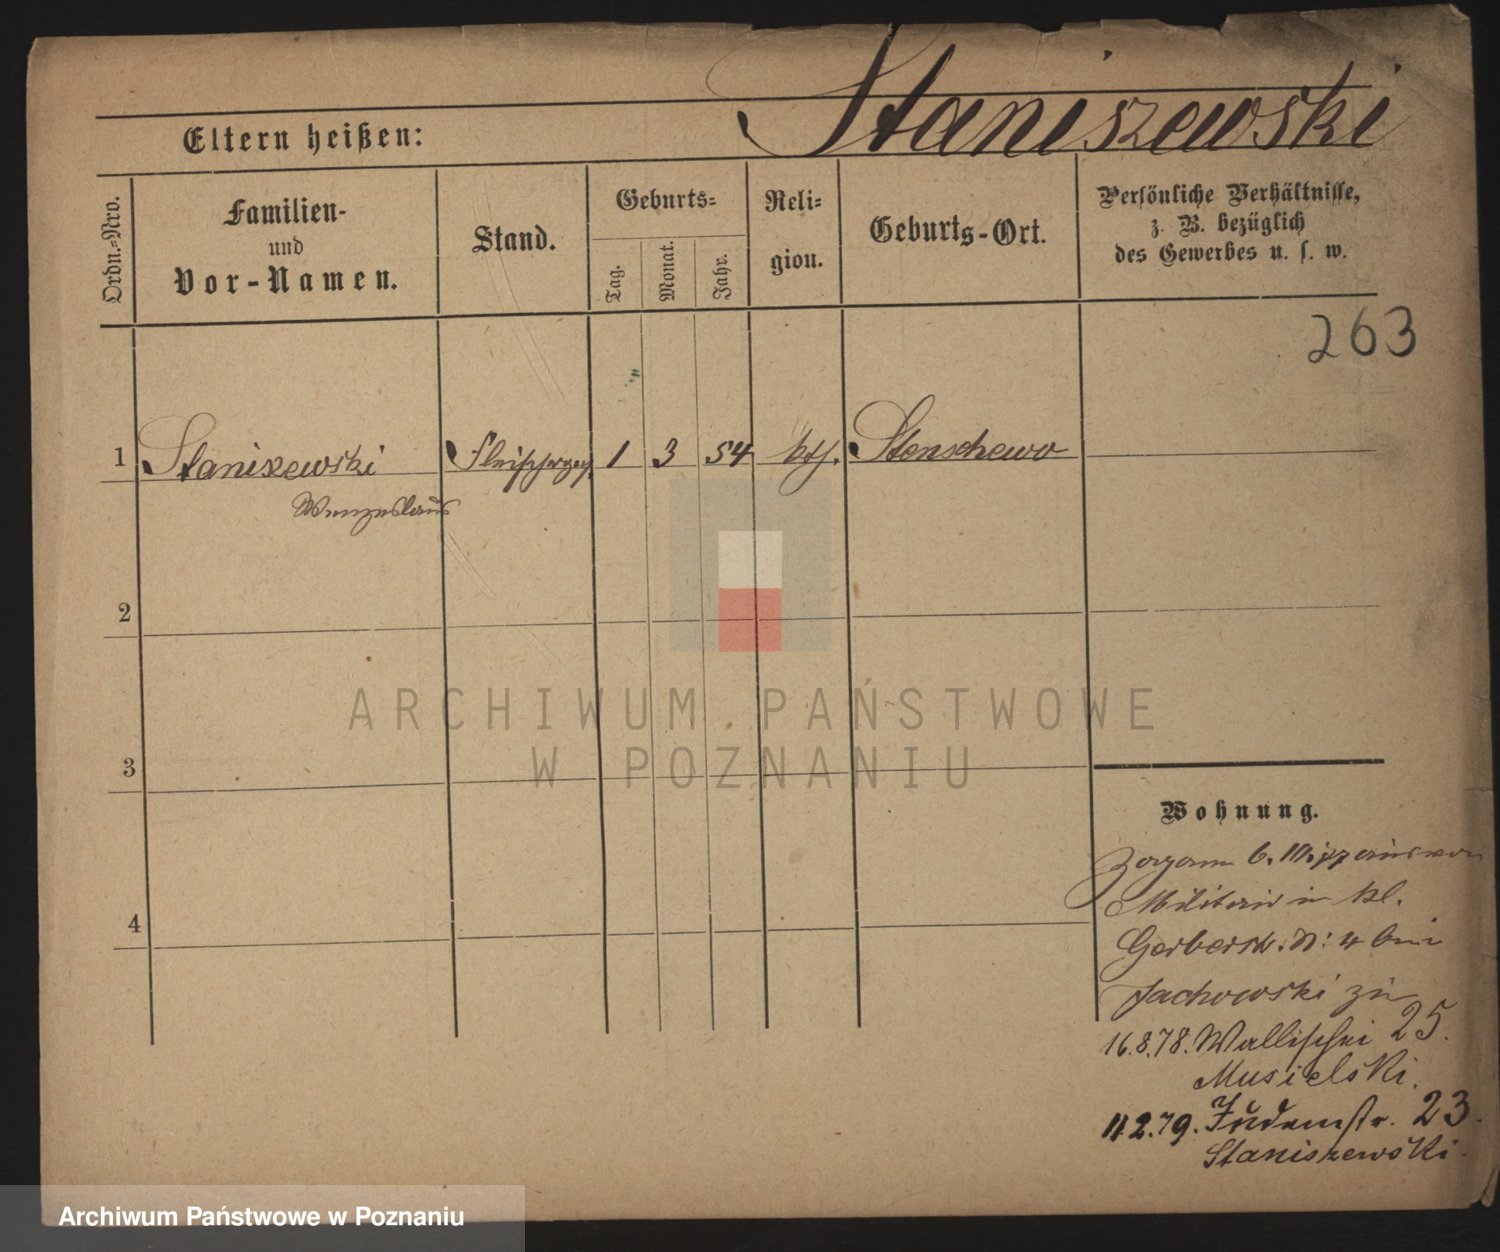 Staniszewski
Eltern heißen:
Ordn.=Nro.
Familien-
und
Vor-Namen.
Stand.
Geburts=
Tag.
Monat.
Jahr.
Reli=
gion.
Geburts-Ort.
Persönliche Verhältnisse,
z. B. bezüglich
des Gewerbes u. s. w.
263
1 Staniszewski 1 3 54 kth. Stenschewo
Wenzeslaus
2
3
4
Wohnung.
Zogen 6.
Militair in kl.
Gerberstr. N: 4 bei
Jachowski zu
16.8.78. Wallischei 25.
Musielski.
11.2.79. Judenstr. 23.
Staniszewski.
ARCHIWUM PAŃSTWOWE
W POZNANIU
Archiwum Państwowe w Poznaniu